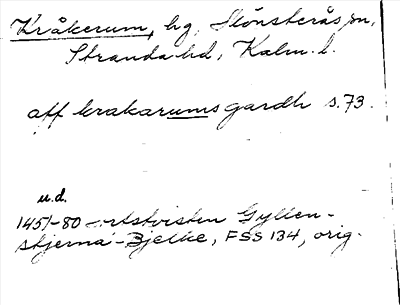 Kråkerum, hg, Mönsterås sn,
Stranda hd, Kalm. l.
aff krakarumsgardh s. 73.
u.d.
1451-80 Arvstvisten Gyllen-
stjerna-Bjelke, FSS 134, orig.